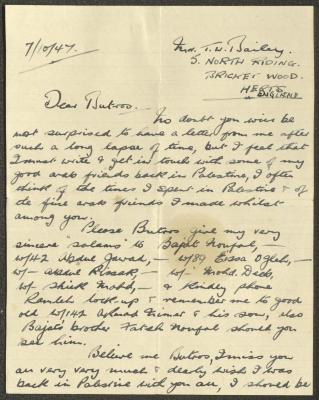 7/10/47.
Mr. T. W. Bailey.
5. NORTH RIDING.
BRICKET WOOD.
HERTS
ENGLAND
Dear Butros. No doubt you will be
most surprised to have a letter from me after
such a long lapse of time, but I feel that
I must write & get in touch with some of my
good arab friends back in Palestine, I often
think of the times I spent in Palestine & of
the fine arab friends I made whilst
among you.
Please Butros give my very
sincere "salams" to Bajat Noufal,
W/142 Abdul Jawad, - W/89 Essa
W/- Abdul Razak, - W/- Mohd. Deeb,
W/ Mohd, - & kindly phone
Ramleh lock-up & remember me to good
old W/142 & his son, also
Bajats brother Fatah Noufal should you
see him.
Believe me Butros, I miss you
all very very much & dearly wish I was
back in Palestine with you all, I should be